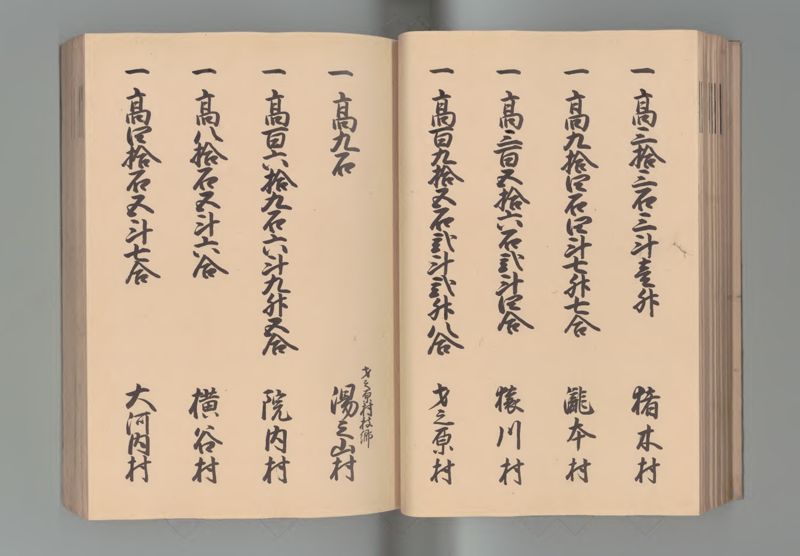 一 高三拾三石三斗壱升 猪木村
一 高九拾四石四斗七升七合 瀧本村
一 高三百五拾六石弐斗四合 猿川村
一 高百九拾五石弐斗弐升八合 才之原村
才之原村枝郷
一 高九石 湯之山村
一 高百六拾九石六斗九升五合 院内村
一 高八拾石五斗六合 横谷村
一 高四拾石五斗七合 大河内村